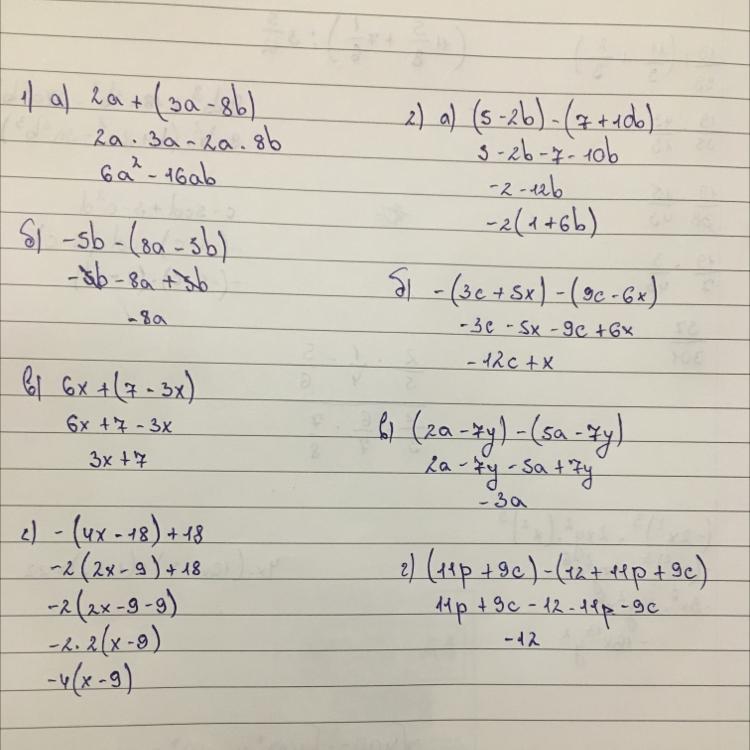 1) а) 2a + (3a - 8b)
2a · 3a - 2a · 8b
6a² - 16ab
б) -5b - (8a - 5b)
-5b - 8a + 5b
-8a
в) 6x + (7 - 3x)
6x + 7 - 3x
3x + 7
г) - (4x - 18) + 18
-2(2x - 9) + 18
-2(2x - 9 - 9)
-2 · 2(x - 9)
-4(x - 9)
2) а) (5 - 2b) - (7 + 10b)
5 - 2b - 7 - 10b
-2 - 12b
-2(1 + 6b)
б) -(3c + 5x) - (9c - 6x)
-3c - 5x - 9c + 6x
-12c + x
в) (2a - 7y) - (5a - 7y)
2a - 7y - 5a + 7y
-3a
г) (11p + 9c) - (12 + 11p + 9c)
11p + 9c - 12 - 11p - 9c
-12